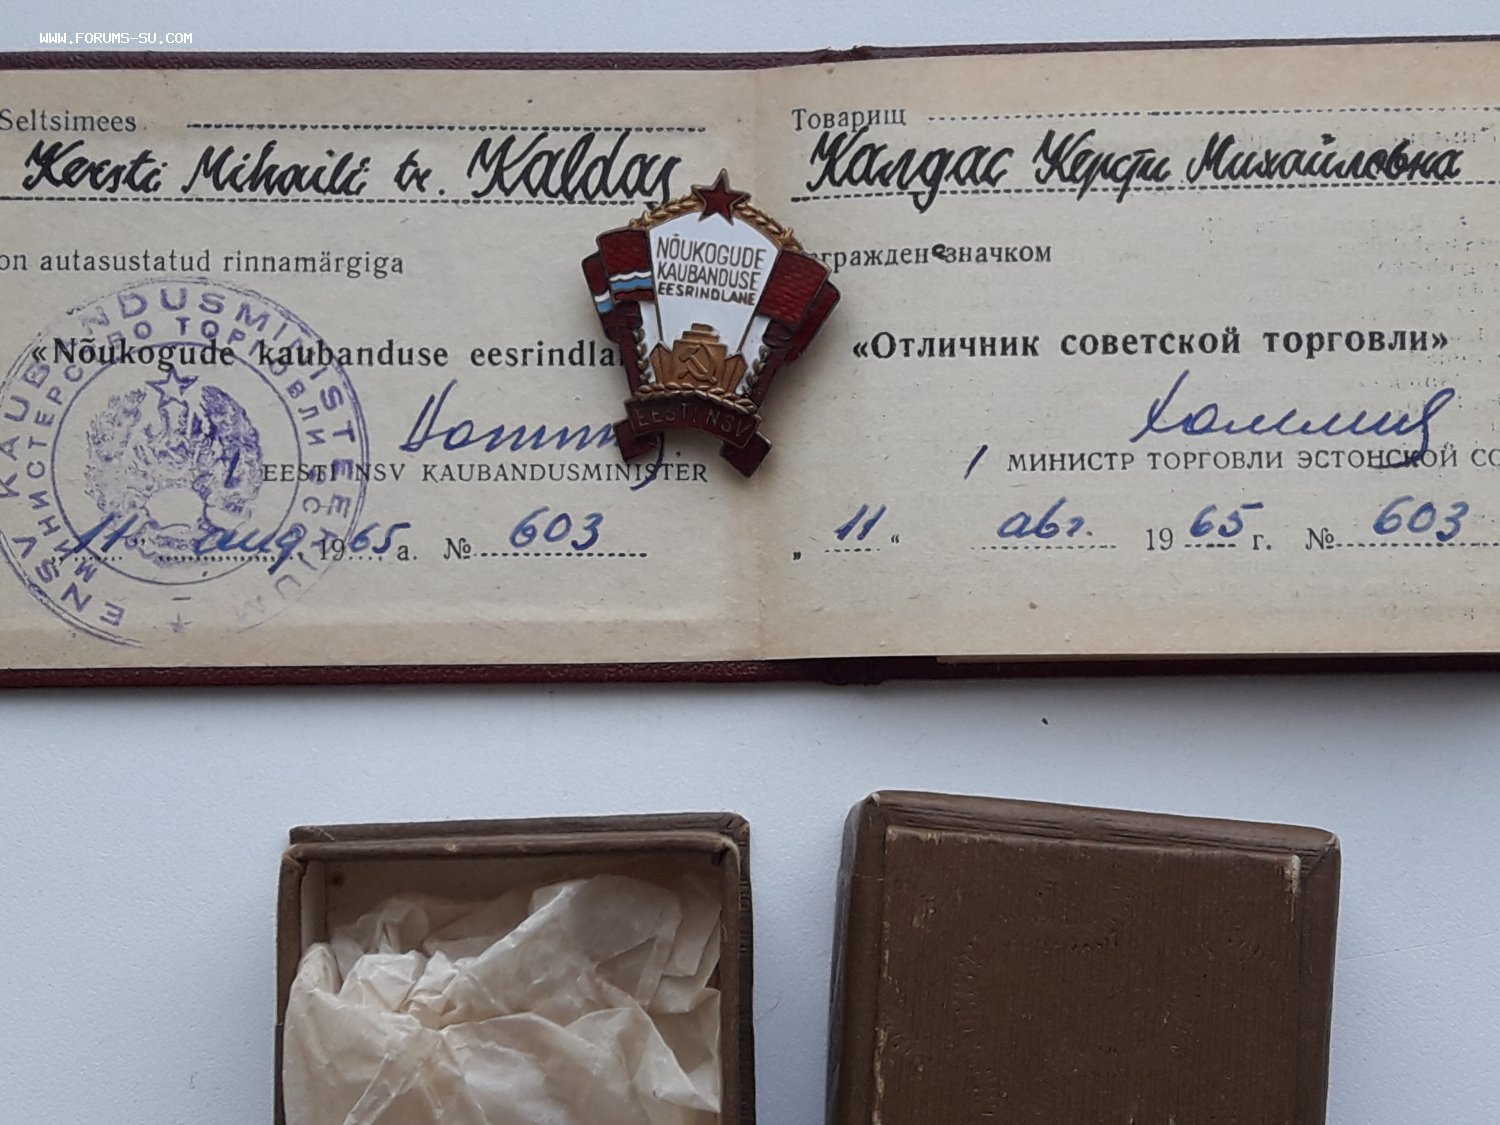 WWW.FORUMS-SU.COM
Seltsimees
Kersti Mihaili tr. Kaldas
on autasustatud rinnamärgiga
«Nõukogude kaubanduse eesrindla
EESTI NSV KAUBANDUSMINISTER
11 aug. 1965 a. № 603
ENSV KAUBANDUSMINISTEERIUM
МИНИСТЕРСТВО ТОРГОВЛИ ЭССР
NÕUKOGUDE
KAUBANDUSE
EESRINDLANE
EESTI NSV
Товарищ
Калдас Керсти Михайловна
гражденa значком
«Отличник советской торговли»
МИНИСТР ТОРГОВЛИ ЭСТОНСКОЙ СС
„ 11 “ авг. 1965 г. № 603